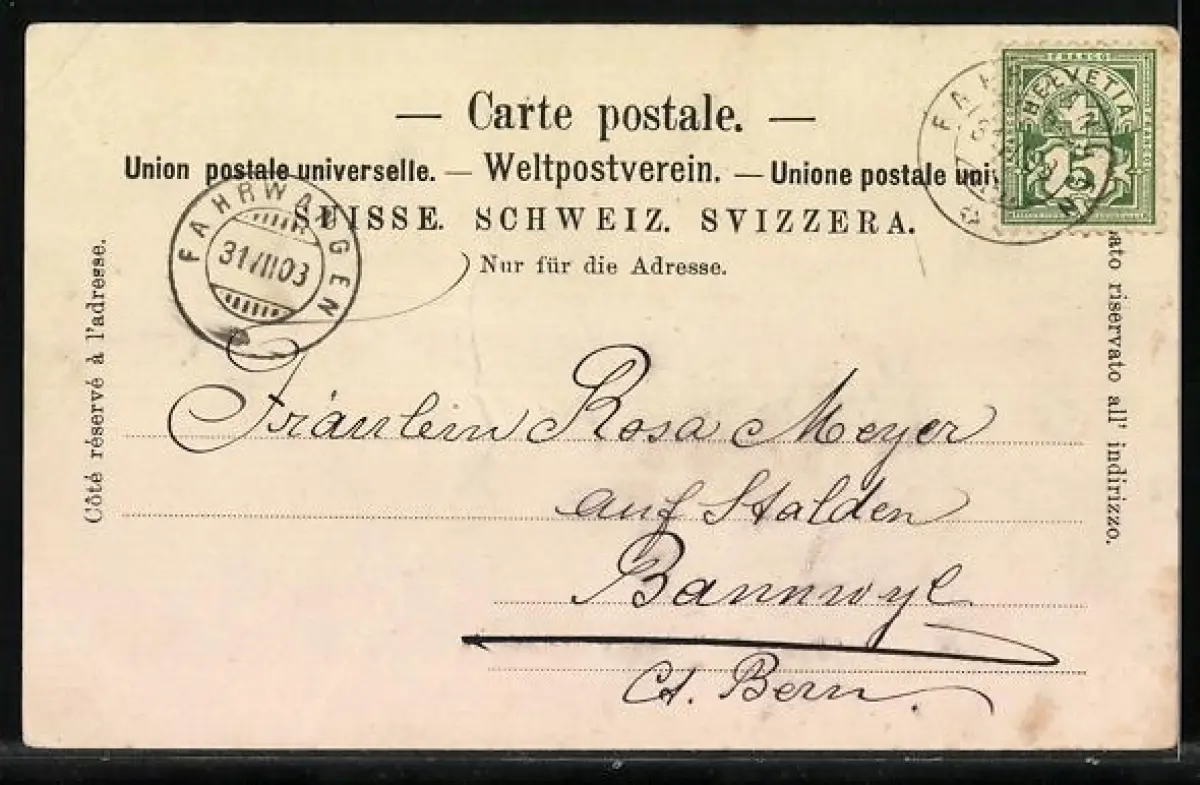 — Carte postale. —
Union postale universelle. — Weltpostverein. — Unione postale uni
SUISSE. SCHWEIZ. SVIZZERA.
Nur für die Adresse.
FRANCO
HELVETIA
FAHRWANGEN
31/III03
Côté réservé à l'adresse.
ato riservato all' indirizzo.
Fräulein Rosa Meyer
auf Stalden
Bannwyl
Ct. Bern.